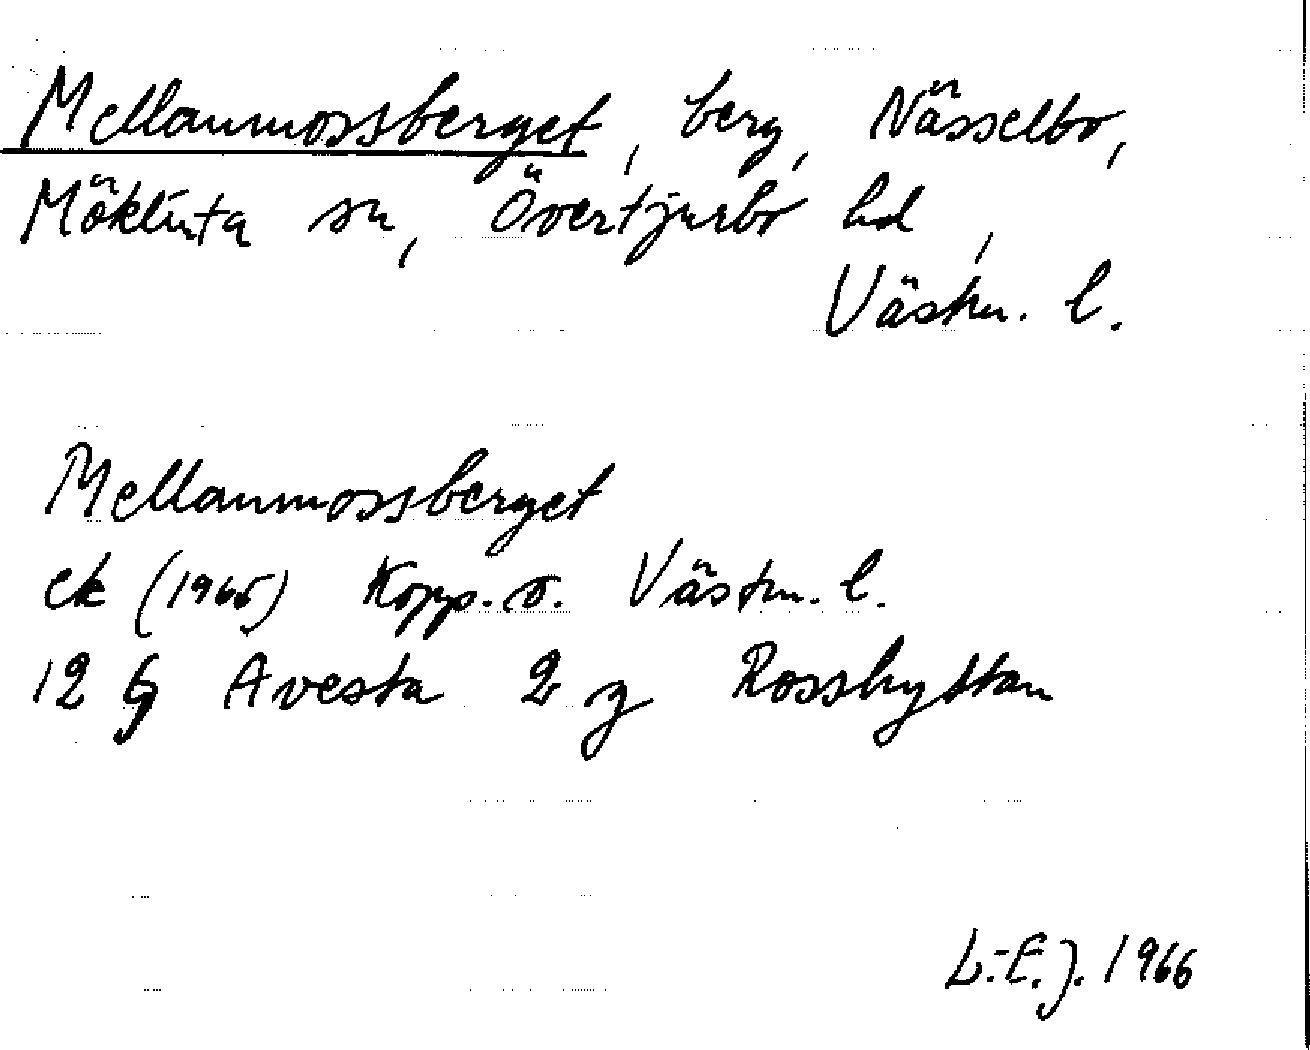 Mellanmossberget, berg, Nässelbo,
Möklinta sn, Övertjurbo hd,
Västm. l.
Mellanmossberget
ek (1965) Kopp. o. Västm. l.
12 G Avesta 2 g Rosshyttan
L.-E. J. 1966